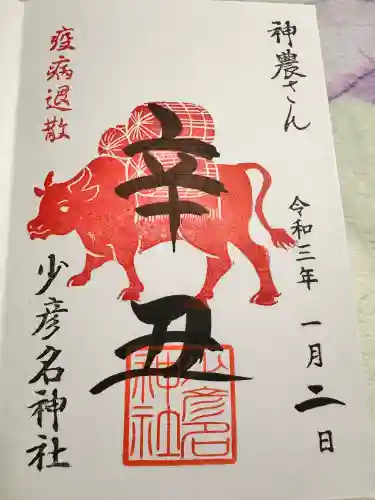 神農さん
令和三年 一月二日
辛丑
疫病退散
少彦名神社
少彦名
神社